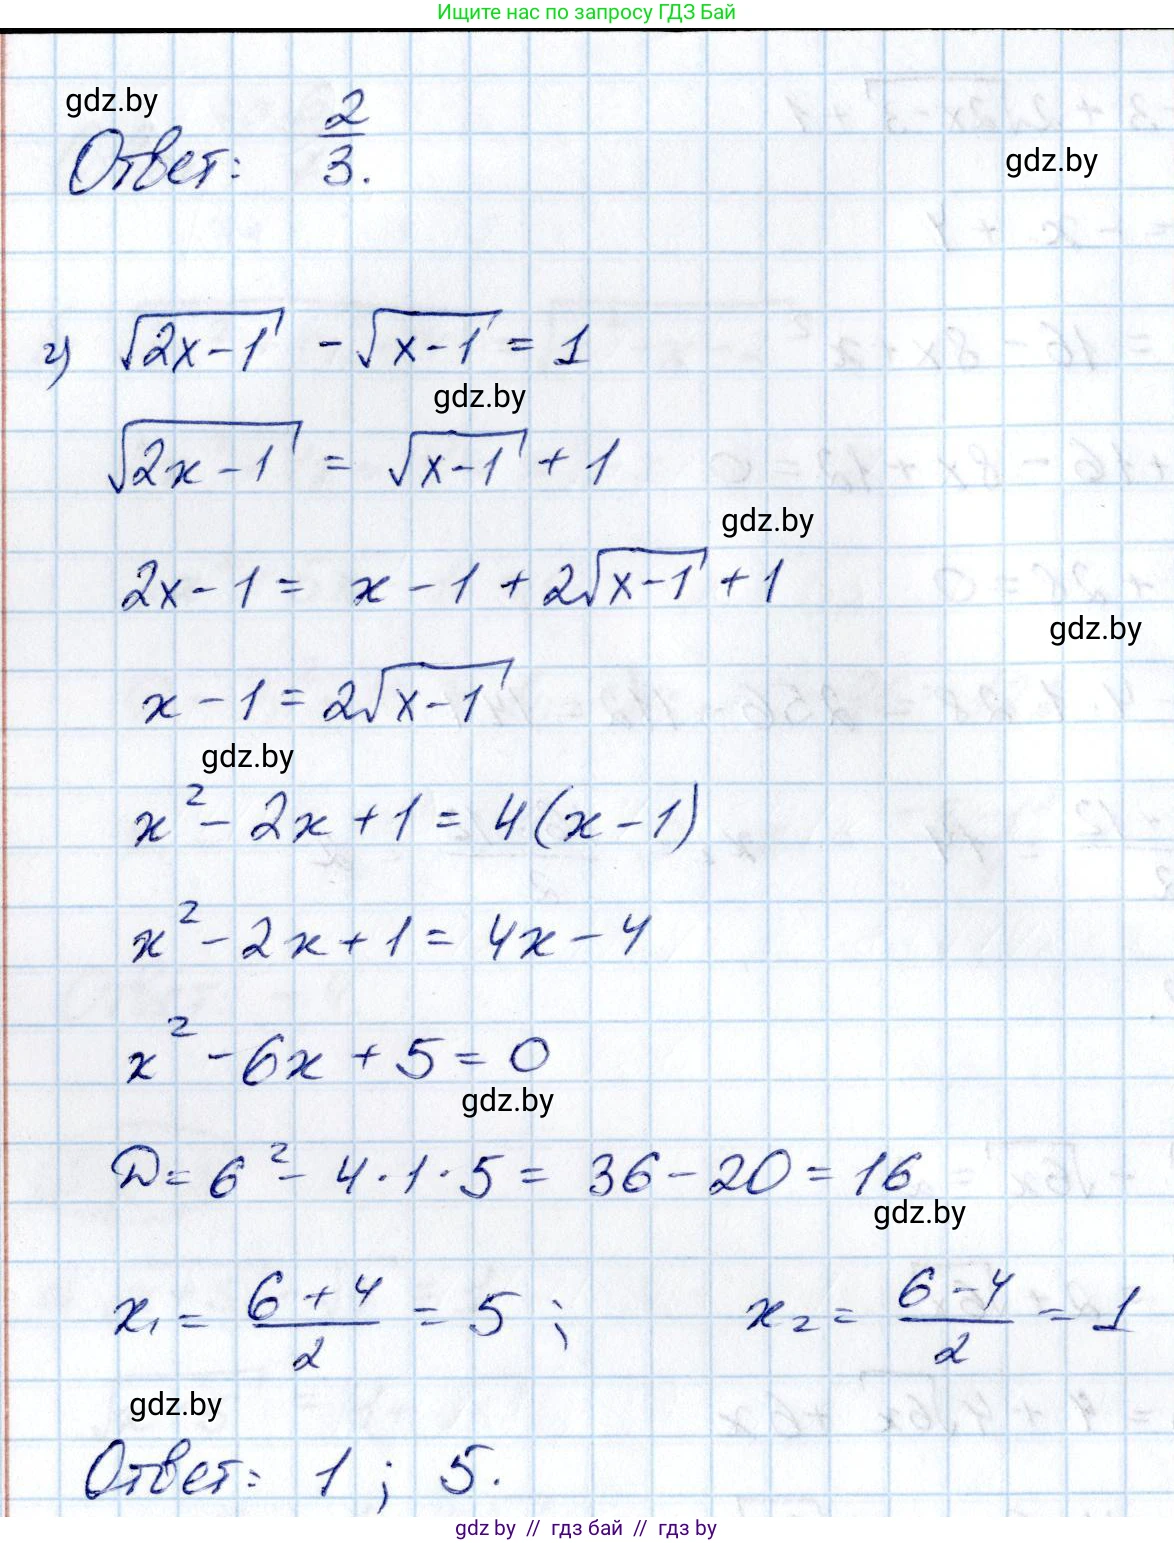 Ищите нас по запросу ГДЗ Бай
gdz.by
Ответ: 2/3.
gdz.by
г) √(2x-1) - √(x-1) = 1
gdz.by
√(2x-1) = √(x-1) + 1
gdz.by
2x-1 = x-1+2√(x-1)+1
gdz.by
x-1 = 2√(x-1)
gdz.by
x²-2x+1 = 4(x-1)
x²-2x+1 = 4x-4
x²-6x+5=0
gdz.by
D=6²-4·1·5 = 36-20=16
gdz.by
x₁ = (6+4)/2 = 5; x₂ = (6-4)/2 = 1
gdz.by
Ответ: 1; 5.
gdz by // гдз бай // гдз by